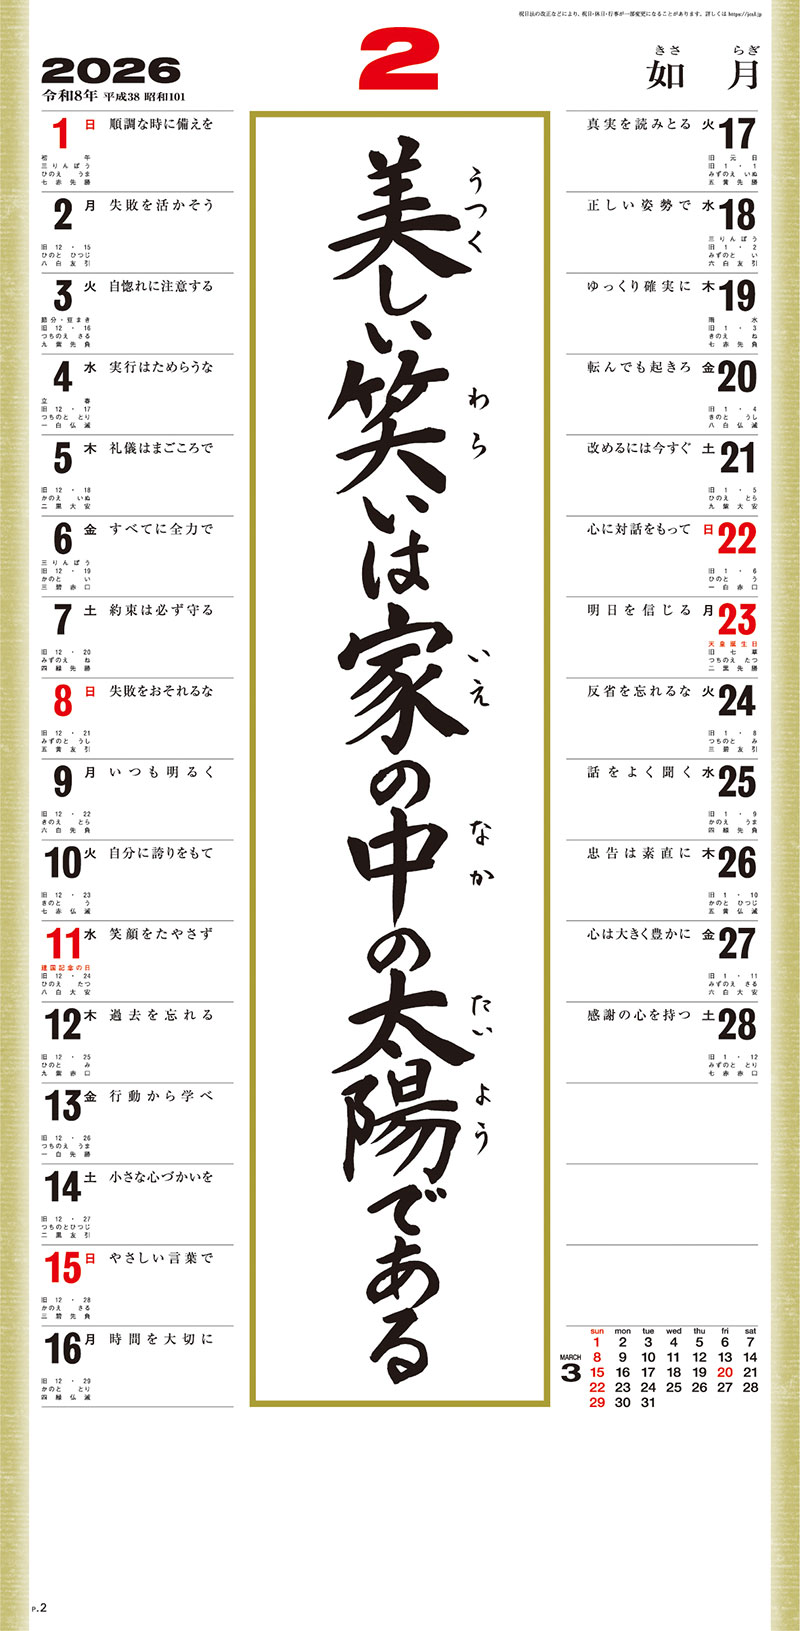 祝日法の改正などにより、祝日・休日・行事が一部変更になることがあります。詳しくは https://jcal.jp
2026
令和8年 平成38 昭和101
2
きさ らぎ
如月
美しい笑いは家の中の太陽である
うつく
わら
いえ
なか
たいよう
1 日 順調な時に備えを
初午
三りんぼう
ひのえ うま
七赤先勝
2 月 失敗を活かそう
旧12・15
ひのと ひつじ
八白友引
3 火 自惚れに注意する
節分・豆まき
旧12・16
つちのえ さる
九紫先負
4 水 実行はためらうな
立春
旧12・17
つちのと とり
一白仏滅
5 木 礼儀はまごころで
旧12・18
かのえ いぬ
二黒大安
6 金 すべてに全力で
三りんぼう
旧12・19
かのと い
三碧赤口
7 土 約束は必ず守る
旧12・20
みずのえ ね
四緑先勝
8 日 失敗をおそれるな
旧12・21
みずのと うし
五黄友引
9 月 いつも明るく
旧12・22
きのえ とら
六白先負
10 火 自分に誇りをもて
旧12・23
きのと う
七赤仏滅
11 水 笑顔をたやさず
建国記念の日
旧12・24
ひのえ たつ
八白大安
12 木 過去を忘れる
旧12・25
ひのと み
九紫赤口
13 金 行動から学べ
旧12・26
つちのえ うま
一白先勝
14 土 小さな心づかいを
旧12・27
つちのと ひつじ
二黒友引
15 日 やさしい言葉で
旧12・28
かのえ さる
三碧先負
16 月 時間を大切に
旧12・29
かのと とり
四緑仏滅
真実を読みとる 火 17
旧元日
旧1・1
みずのえ いぬ
五黄先勝
正しい姿勢で 水 18
三りんぼう
旧1・2
みずのと い
六白友引
ゆっくり確実に 木 19
雨水
旧1・3
きのえ ね
七赤先負
転んでも起きろ 金 20
旧1・4
きのと うし
八白仏滅
改めるには今すぐ 土 21
旧1・5
ひのえ とら
九紫大安
心に対話をもって 日 22
旧1・6
ひのと う
一白赤口
明日を信じる 月 23
天皇誕生日
旧七草
つちのえ たつ
二黒先勝
反省を忘れるな 火 24
旧1・8
つちのと み
三碧友引
話をよく聞く 水 25
旧1・9
かのえ うま
四緑先負
忠告は素直に 木 26
旧1・10
かのと ひつじ
五黄仏滅
心は大きく豊かに 金 27
旧1・11
みずのえ さる
六白大安
感謝の心を持つ 土 28
旧1・12
みずのと とり
七赤赤口
MARCH
3
sun mon tue wed thu fri sat
1 2 3 4 5 6 7
8 9 10 11 12 13 14
15 16 17 18 19 20 21
22 23 24 25 26 27 28
29 30 31
P.2